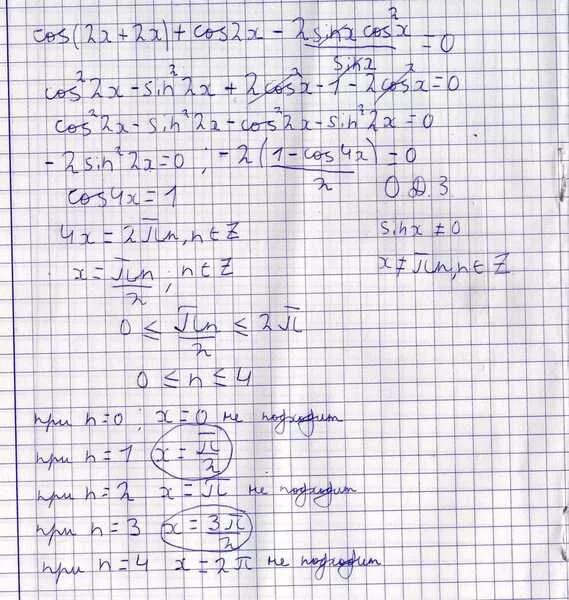 cos(2x+2x)+cos2x-2sinx cos²x/sinx=0
cos²2x-sin²2x+2cos²x-1-2cos²x=0
cos²2x-sin²2x-cos²2x-sin²2x=0
-2sin²2x=0; -2(1-cos4x)/2=0
cos4x=1 О.Д.З
4x=2πn, n∈Z sinx≠0
x=πn/2; n∈Z x≠πn, n∈Z
0≤πn/2≤2π
0≤n≤4
при n=0; x=0 не подходит
при n=1 x=π/2
при n=2 x=π не подходит
при n=3 x=3π/2
при n=4 x=2π не подходит